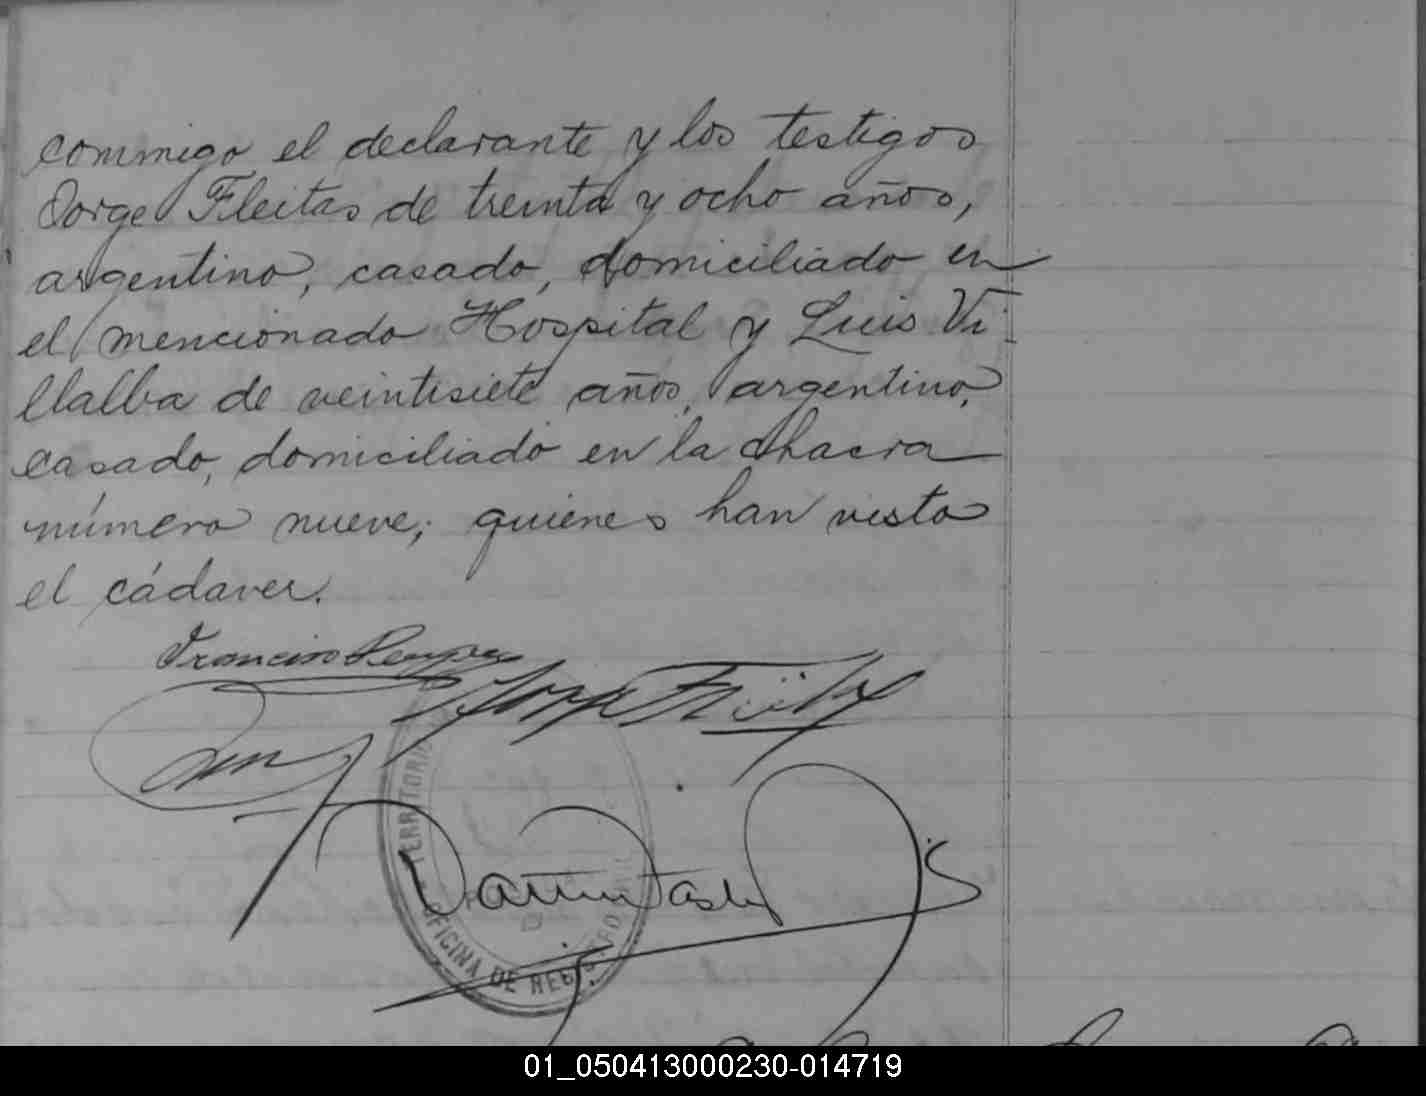 conmigo el declarante y los testigos
Jorge Fleitas de treinta y ocho años,
argentino, casado, domiciliado en
el mencionado Hospital y Luis Vi-
llalba de veintisiete años, argentino,
casado, domiciliado en la chacra
número nueve; quienes han visto
el cádaver.
Francisco
TERRITORIO
OFICINA DE REGISTRO CIVIL
01_050413000230-014719